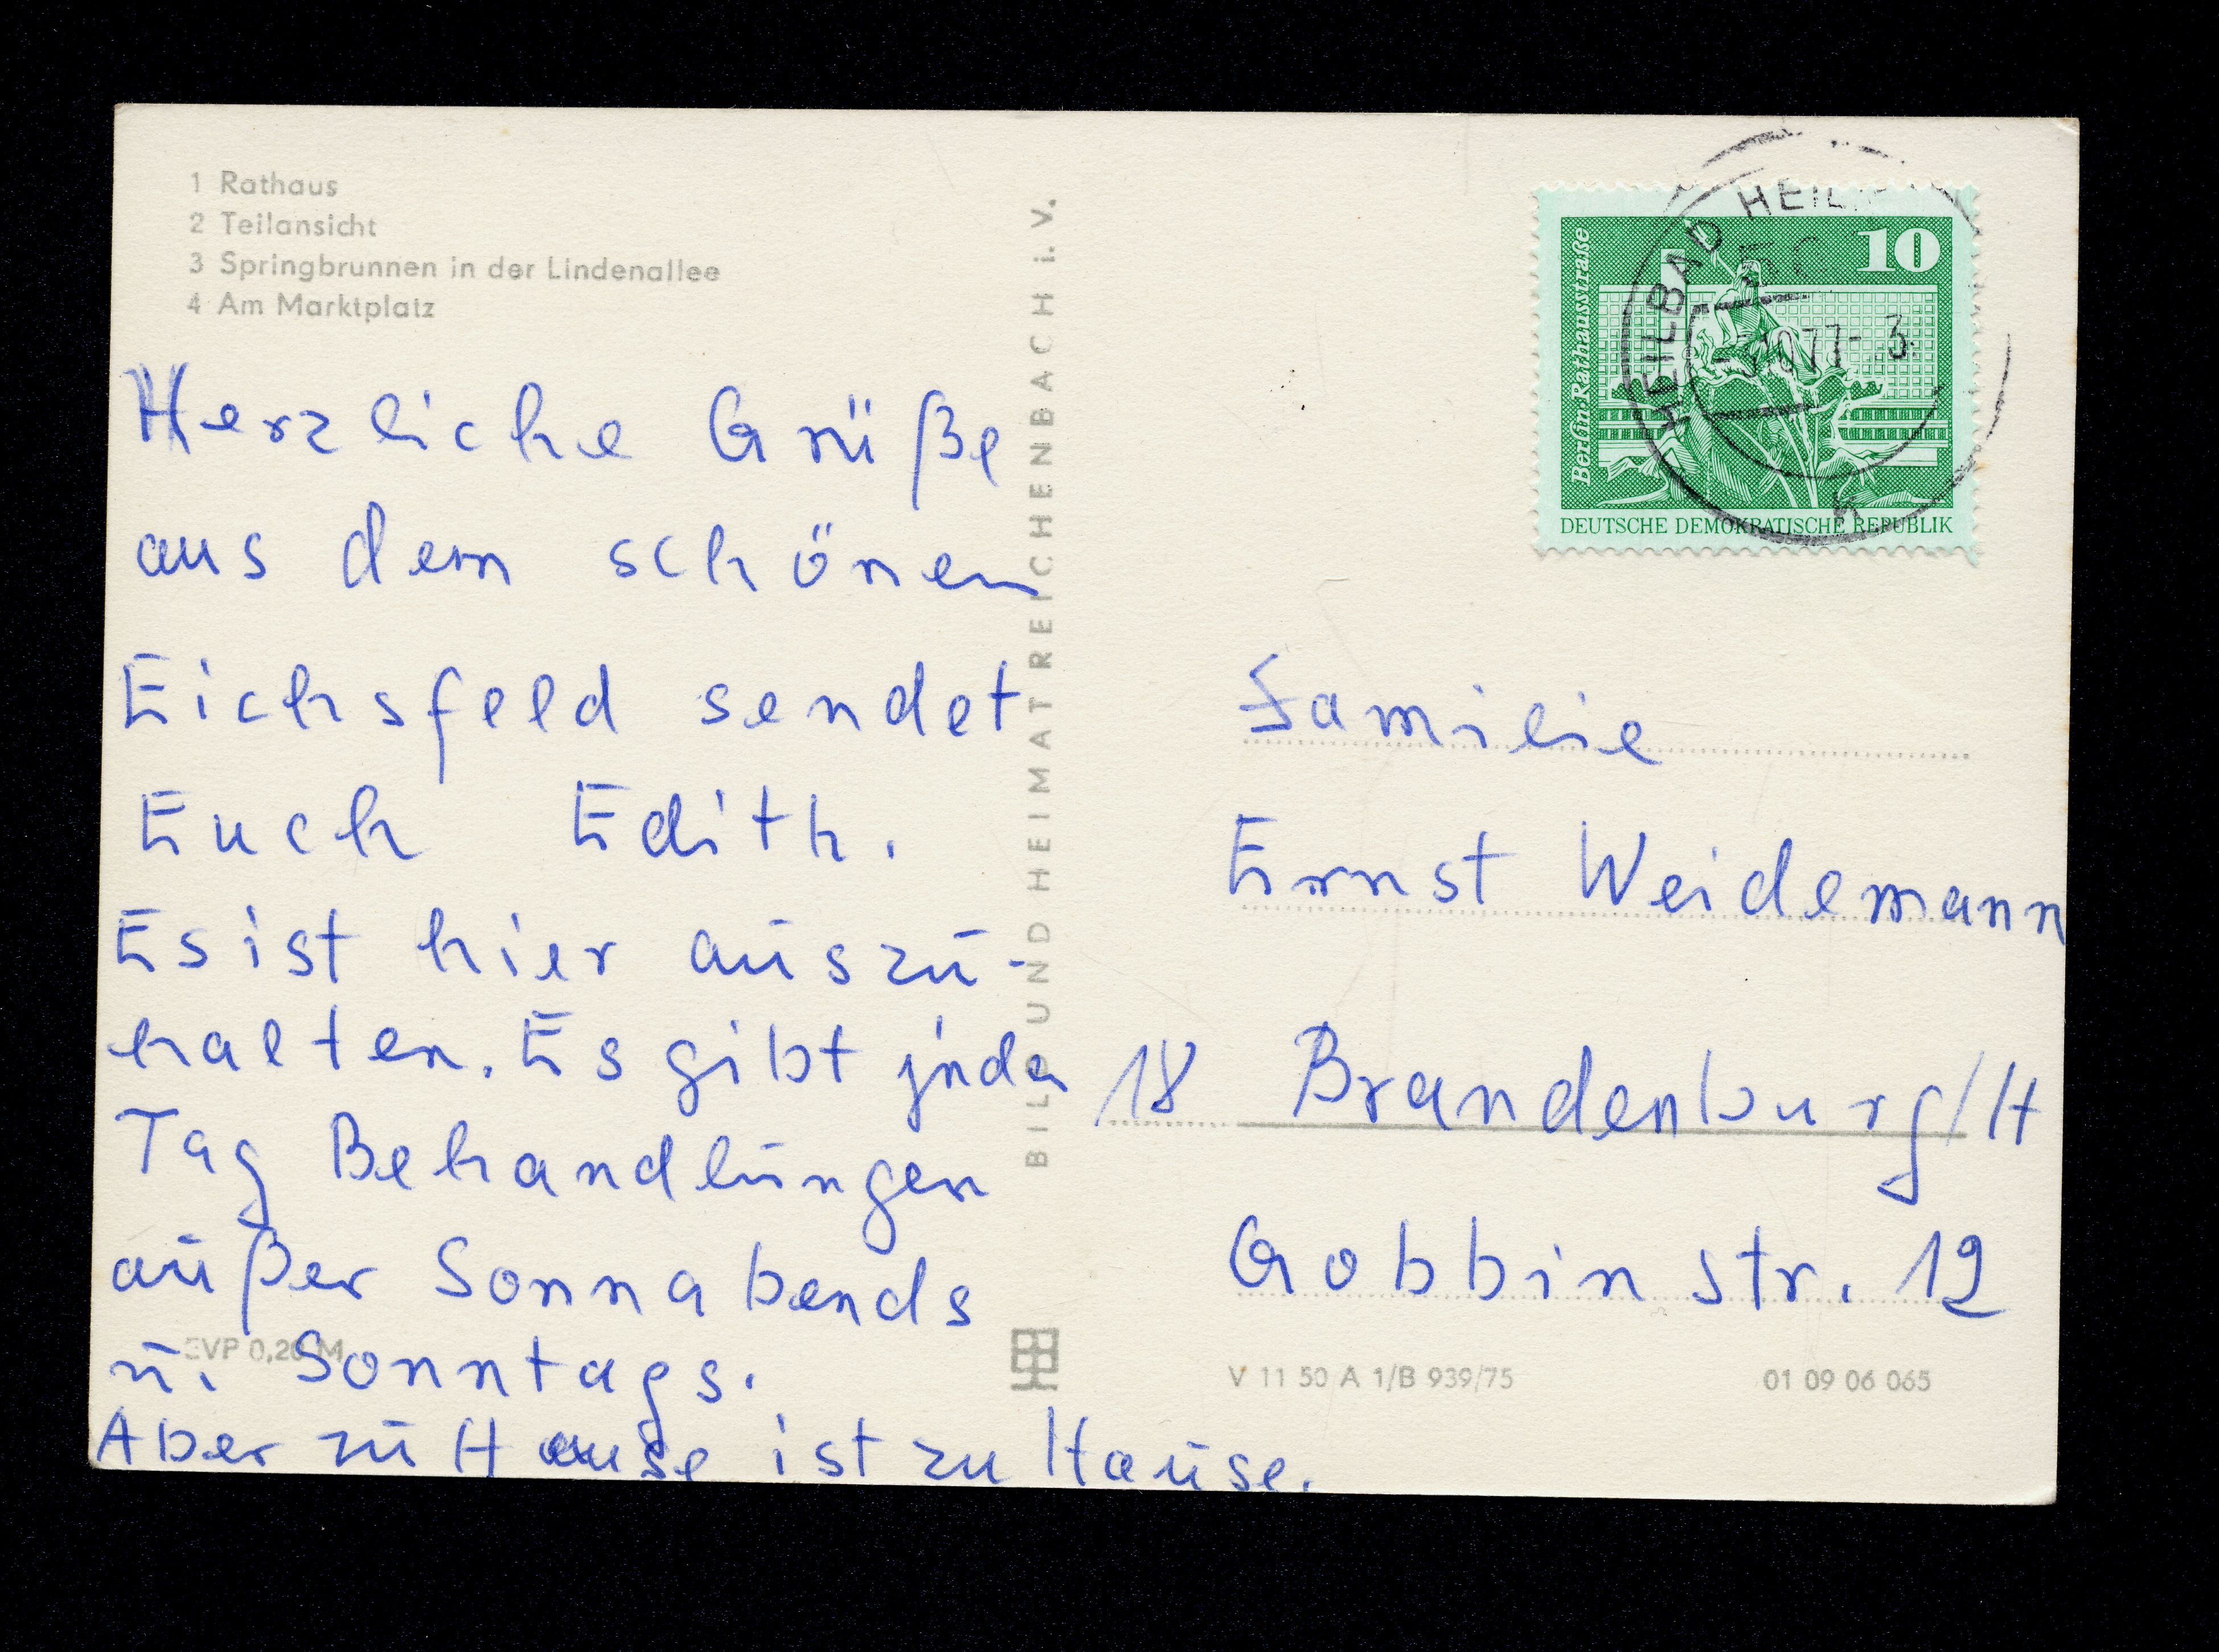 1 Rathaus
2 Teilansicht
3 Springbrunnen in der Lindenallee
4 Am Marktplatz
Herzliche Grüße
aus dem schönen
Eichsfeld sendet
Euch Edith.
Es ist hier auszu-
halten. Es gibt jeden
Tag Behandlungen
außer Sonnabends
u. Sonntags.
Aber zu Hause ist zu Hause.
EVP 0,20 M
BILD UND HEIMAT REICHENBACH i. V.
HEILBAD HEILI
77
Berlin-Rathausstraße
10
DEUTSCHE DEMOKRATISCHE REPUBLIK
Familie
Ernst Weidemann
18 Brandenburg/H
Gobbinstr. 12
V 11 50 A 1/B 939/75
01 09 06 065